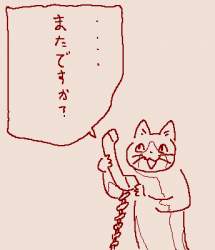 ・・・・
またですか？